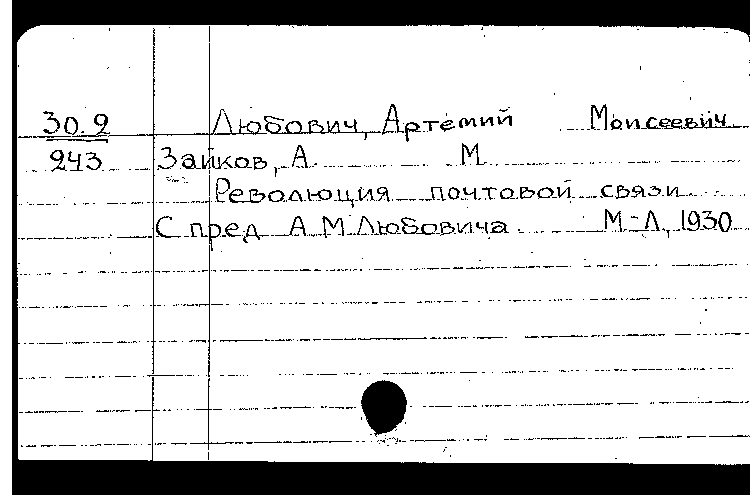 30.9 Любович, Артемий Моисеевич
243 Зайков, А. М.
Революция почтовой связи.
С пред. А.М. Любовича. М-Л, 1930